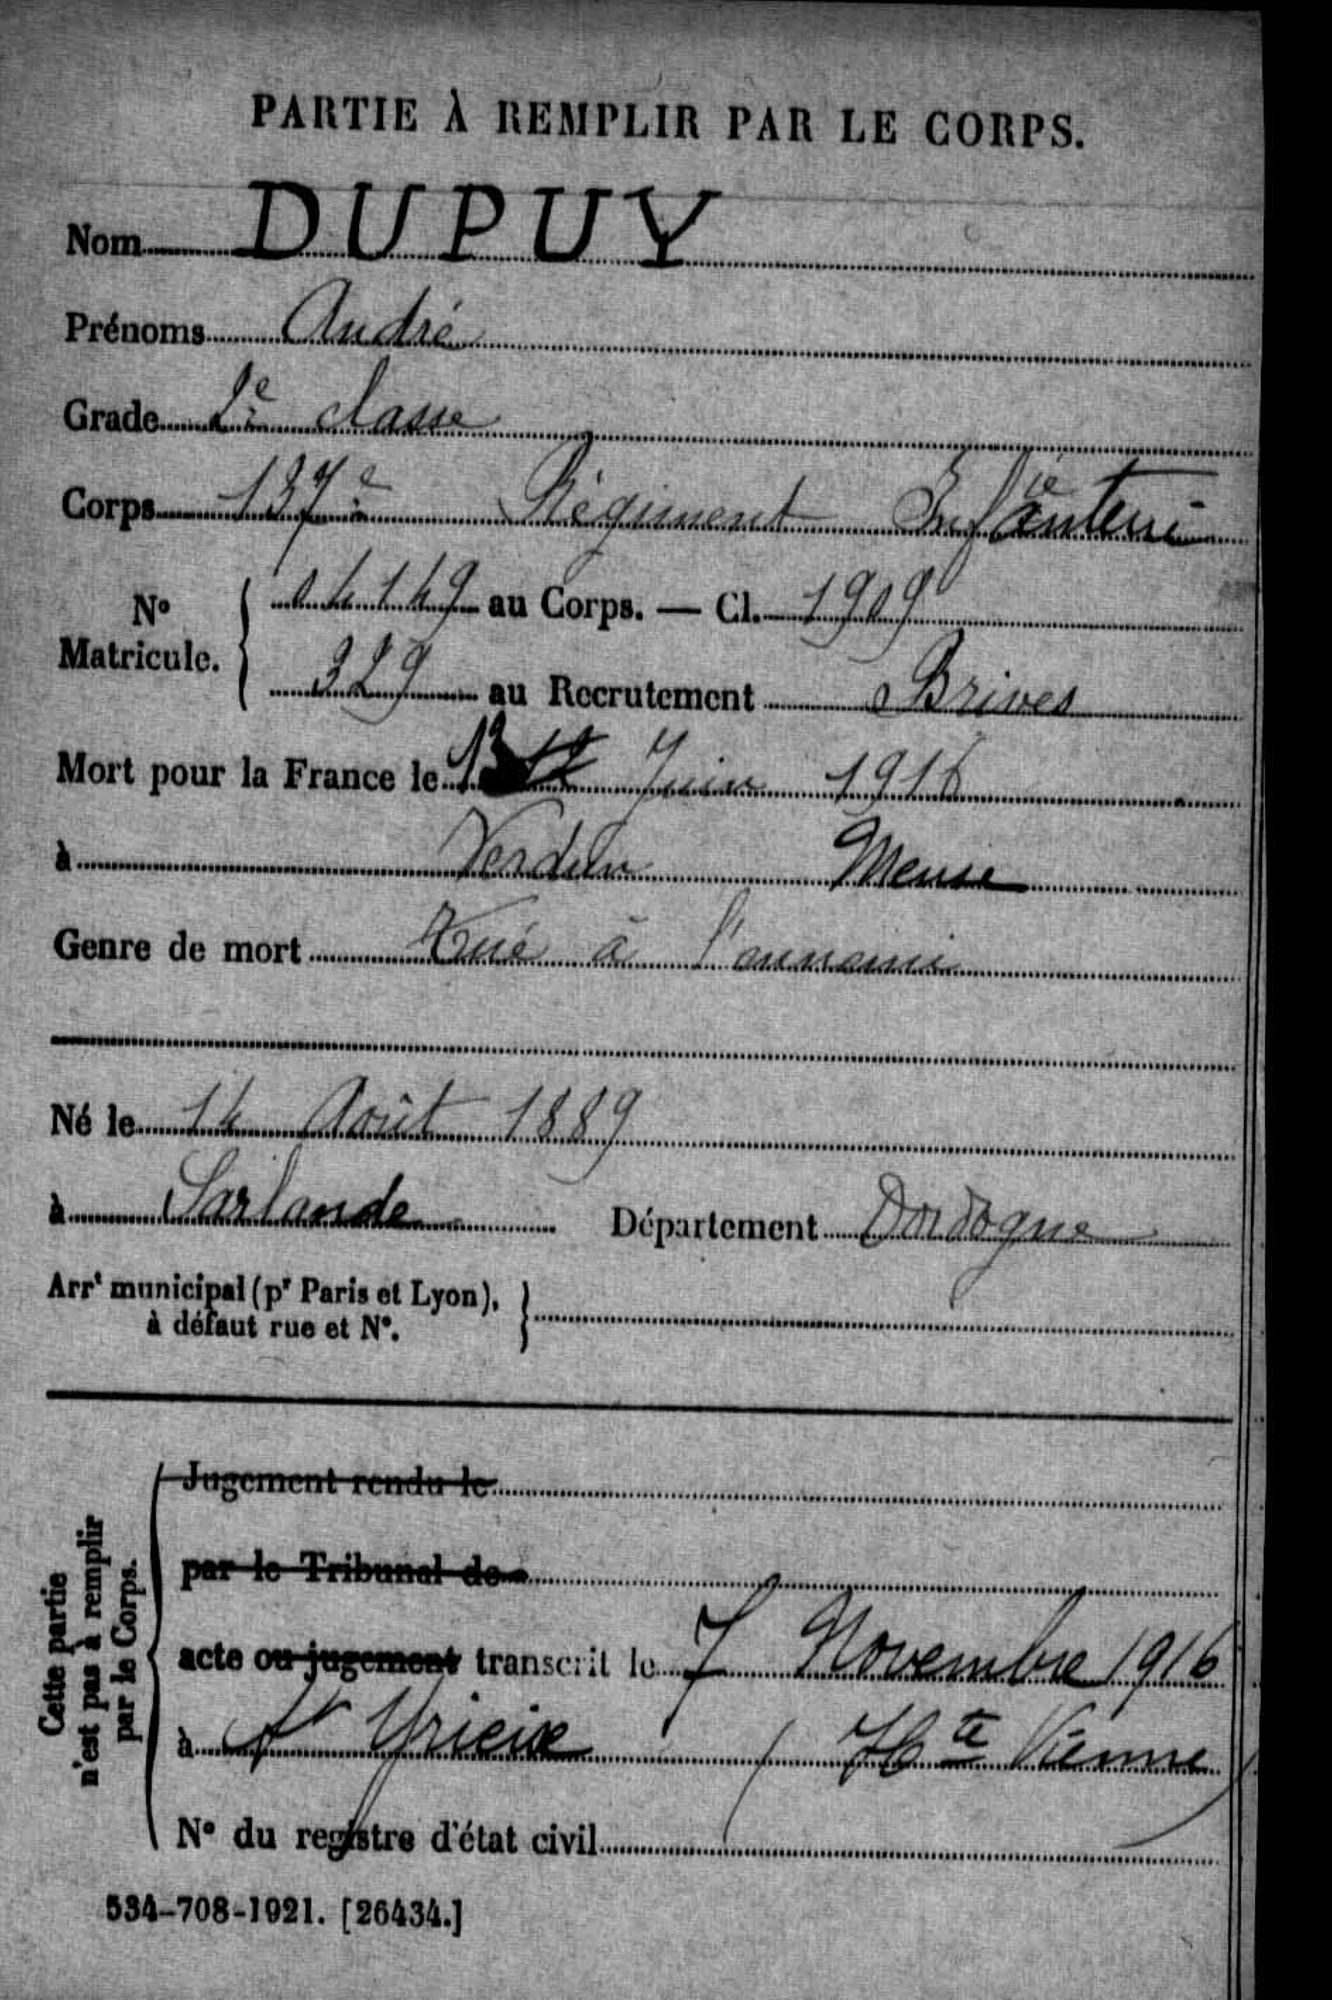 PARTIE À REMPLIR PAR LE CORPS.
Nom DUPUY
Prénoms André
Grade 2e classe
Corps 137e Régiment Infanterie
No Matricule. 04149 au Corps. — Cl. 1909
329 au Recrutement Brives
Mort pour la France le 13 12 Juin 1916
à Verdun Meuse
Genre de mort Tué à l'ennemi
Né le 14 Août 1889
à Sarlande Département Dordogne
Arrt municipal (pr Paris et Lyon),
à défaut rue et No.
Cette partie
n'est pas à remplir
par le Corps.
Jugement rendu le
par le Tribunal de
acte ou jugement transcrit le 7 Novembre 1916
à St Yrieix (Hte Vienne)
No du registre d'état civil
534-708-1921. [26434.]